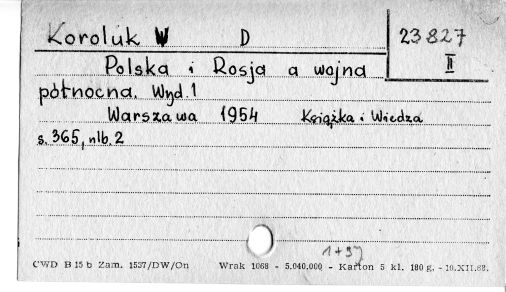 Koroluk W D
23827
II
Polska i Rosja a wojna
północna. Wyd. 1
Warszawa 1954 Książka i Wiedza
s. 365, nlb. 2
1+37
CWD B 15 b Zam. 1537/DW/On Wrak 1068 - 5.040.000 - Karton 5 kl. 180 g. - 10.XII.68.